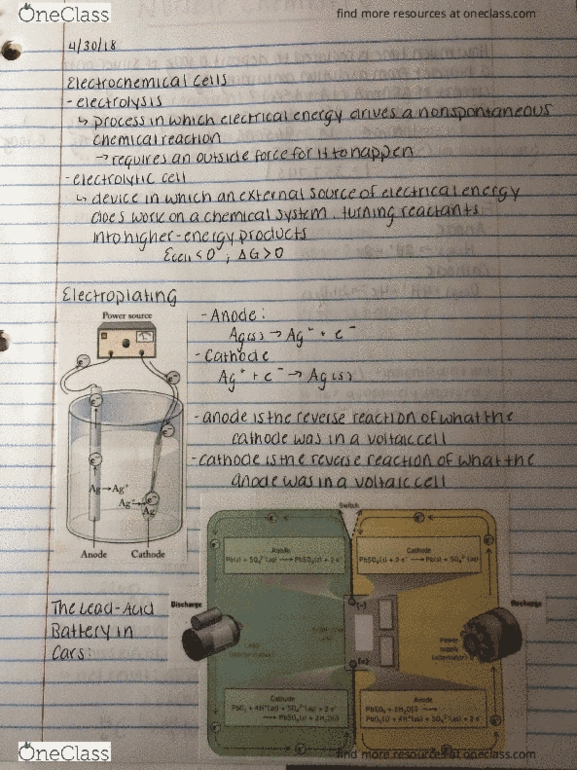 OneClass
find more resources at oneclass.com
4/30/18
Electrochemical cells
- electrolysis
↳ process in which electrical energy drives a nonspontaneous
chemical reaction
→ requires an outside force for it to happen
- electrolytic cell
↳ device in which an external source of electrical energy
does work on a chemical system, turning reactants
into higher-energy products
Ɛcell < 0 ; ΔG > 0
Electroplating
Power source
- Anode:
Ag(s) → Ag⁺ + e⁻
- Cathode
Ag⁺ + e⁻ → Ag(s)
- anode is the reverse reaction of what the
cathode was in a voltaic cell
- cathode is the reverse reaction of what the
anode was in a voltaic cell
Ag→Ag⁺
Ag⁺→
Ag
Anode Cathode
Switch
Anode
Pb(s) + SO₄²⁻(aq) → PbSO₄(s) + 2 e⁻
Cathode
PbSO₄(s) + 2 e⁻ → Pb(s) + SO₄²⁻(aq)
The Lead-Acid
Battery in
Cars:
Discharge
(-)
Recharge
Power
supply
(+)
Cathode
PbO₂ + 4H⁺(aq) + SO₄²⁻(aq) + 2 e⁻
→ PbSO₄(s) + 2H₂O(l)
Anode
PbSO₄ + 2H₂O(l) →
PbO₂(s) + 4H⁺(aq) + SO₄²⁻(aq) + 2 e⁻
OneClass
find more resources at oneclass.com